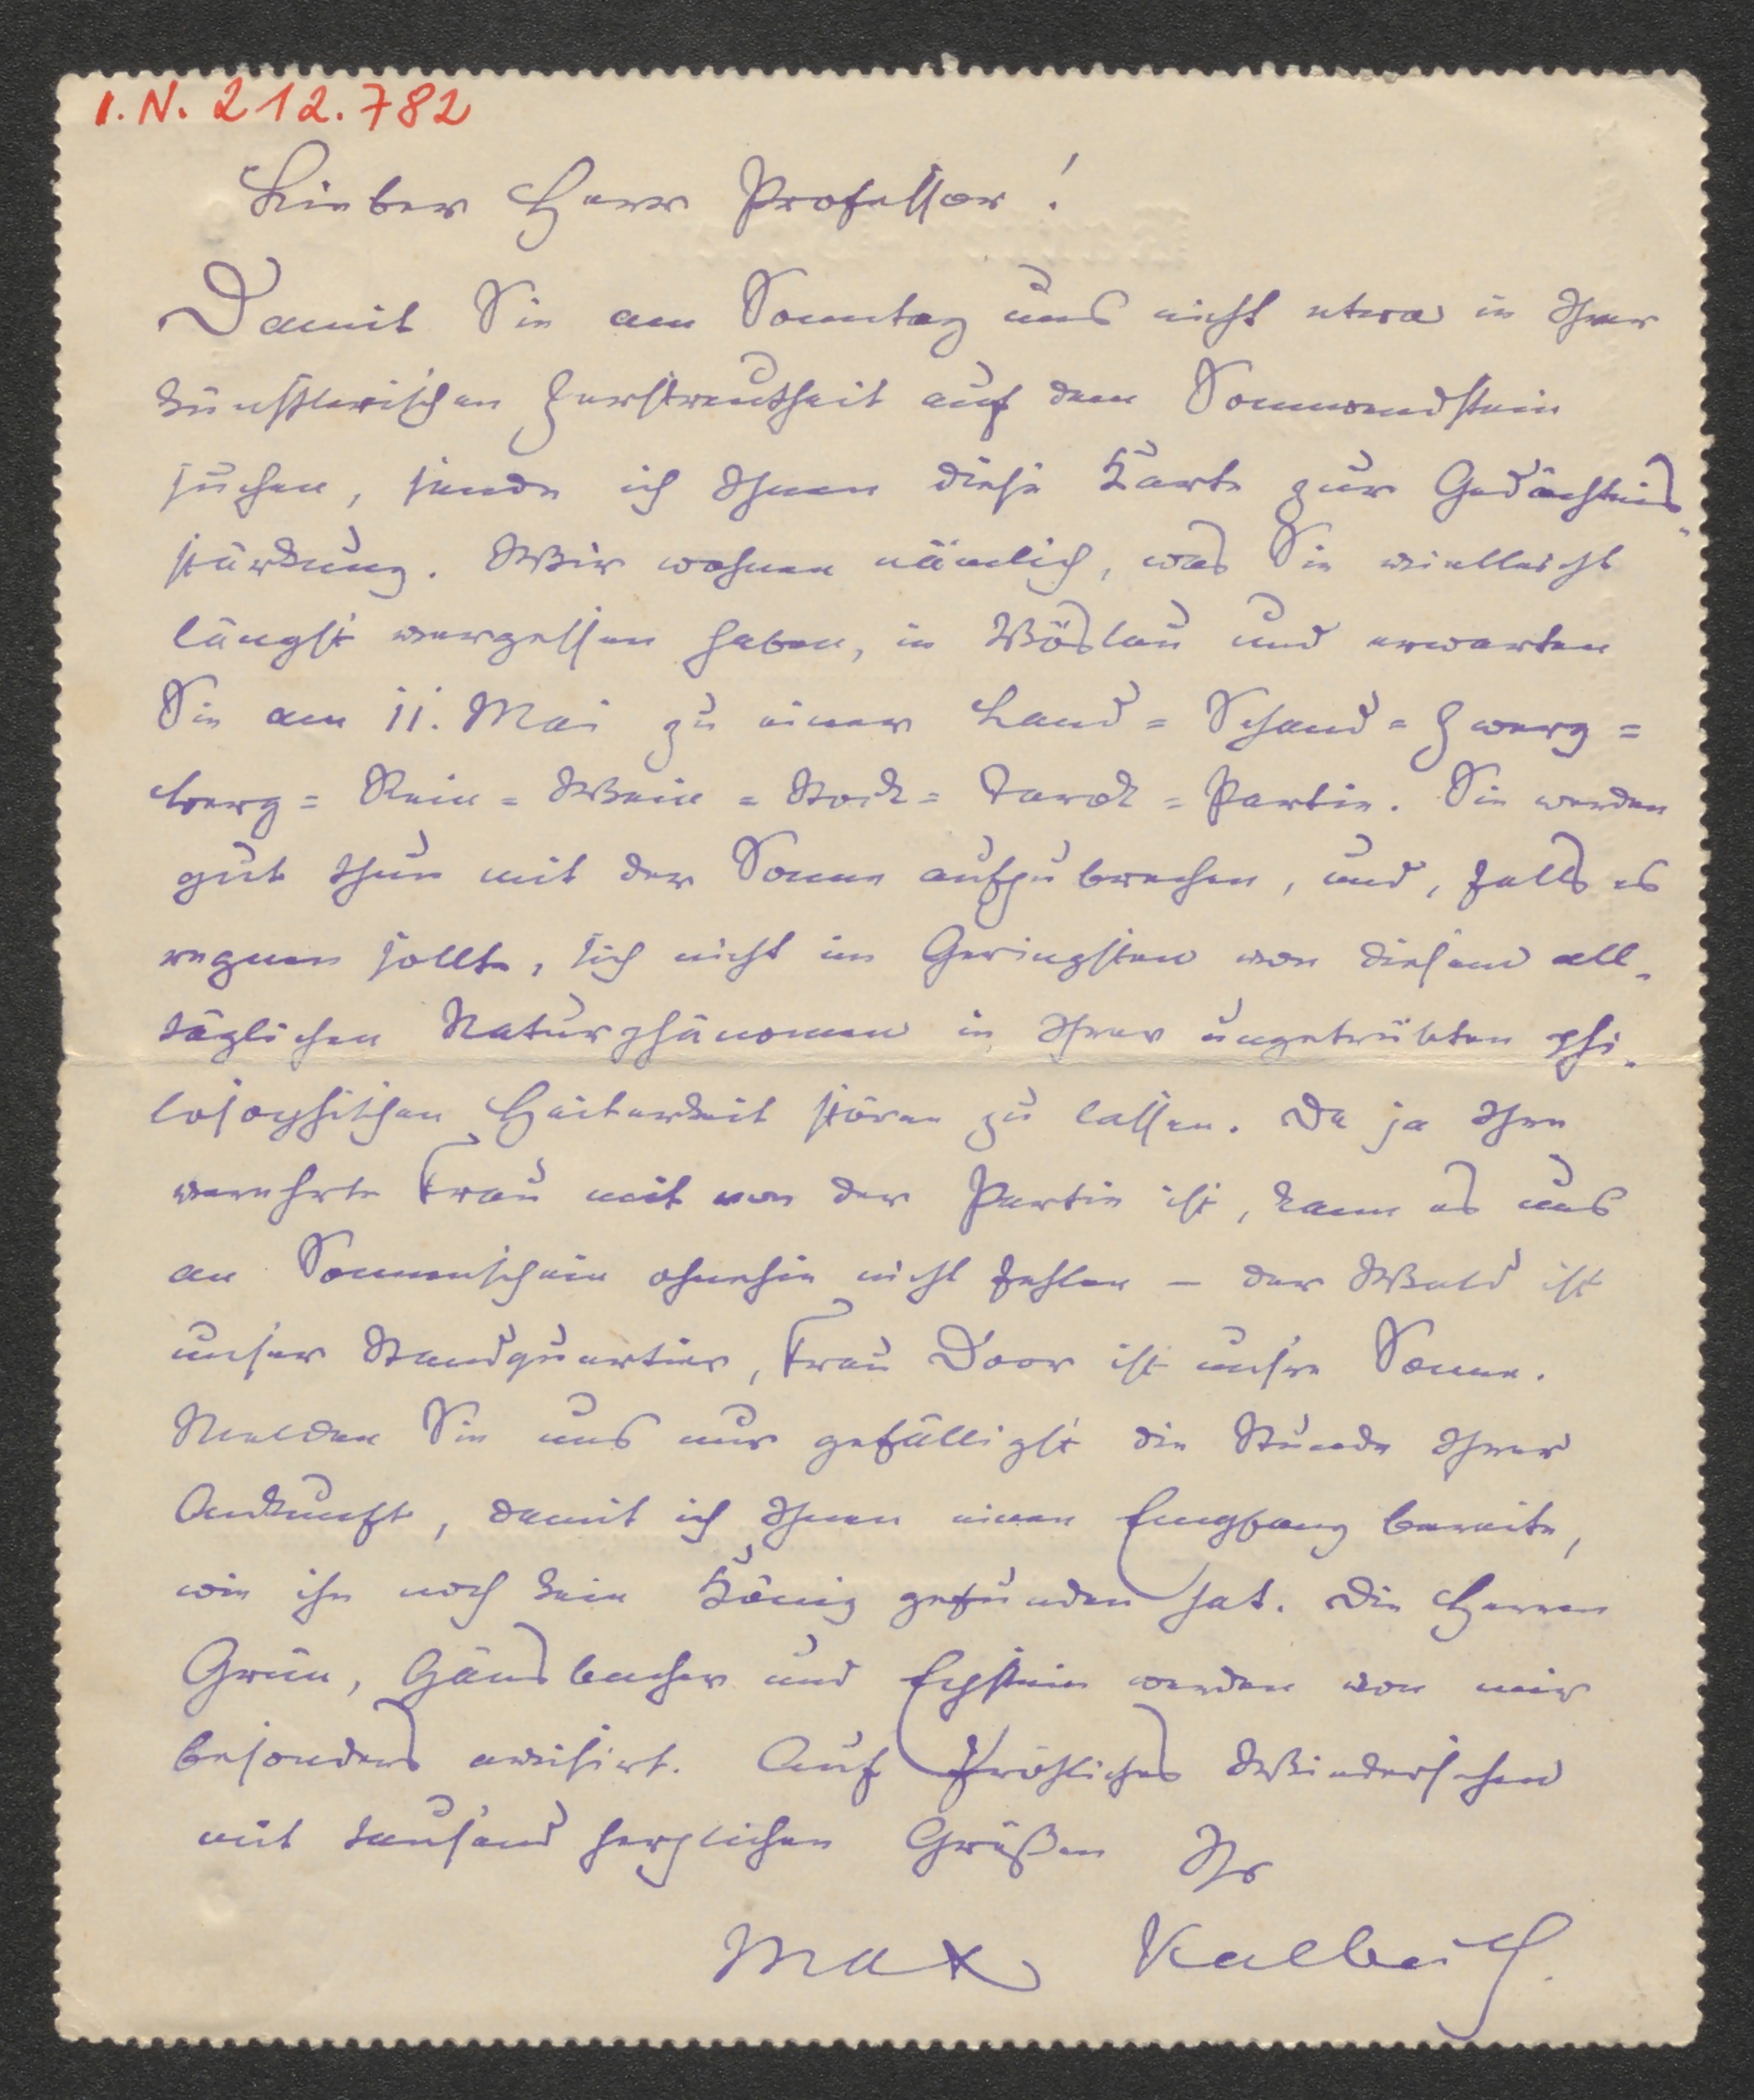 I.N. 212.782
Lieber Herr Professor!
Damit Sie am Sonntag uns nicht etwa in Ihrer
künstlerischen Zerstreutheit auf dem Sonnwendstein
suchen, sende ich Ihnen diese Karte zur Gedächtnis-
stärkung. Wir wohnen nämlich, was Sie vielleicht
längst vergessen haben, in Vöslau und erwarten
Sie am 11. Mai zu einer Land= Schand= Zwerg=
berg= Rein= Wein= Stock= Tarok= Partie. Sie werden
gut thun mit der Sonne aufzubrechen, und, falls es
regnen sollte, sich nicht im Geringsten von diesem all-
täglichen Naturphänomen in Ihrer ungetrübten phi-
losophischen Heiterkeit stören zu lassen. Da ja Ihre
verehrte Frau mit von der Partie ist, kann es uns
an Sonnenschein ohnehin nicht fehlen – der Wald ist
unser Standquartier, Frau Door ist unsre Sonne.
Melden Sie uns nur gefälligst die Stunde Ihrer
Ankunft, damit ich Ihnen einen Empfang bereite,
wie ihn noch kein König gefunden hat. Die Herren
Grün, Gänsbacher und Epstein werden von mir
besonders avisirt. Auf fröhliches Wiedersehen
mit tausend herzlichen Grüßen Ihr
Max Kalbeck.